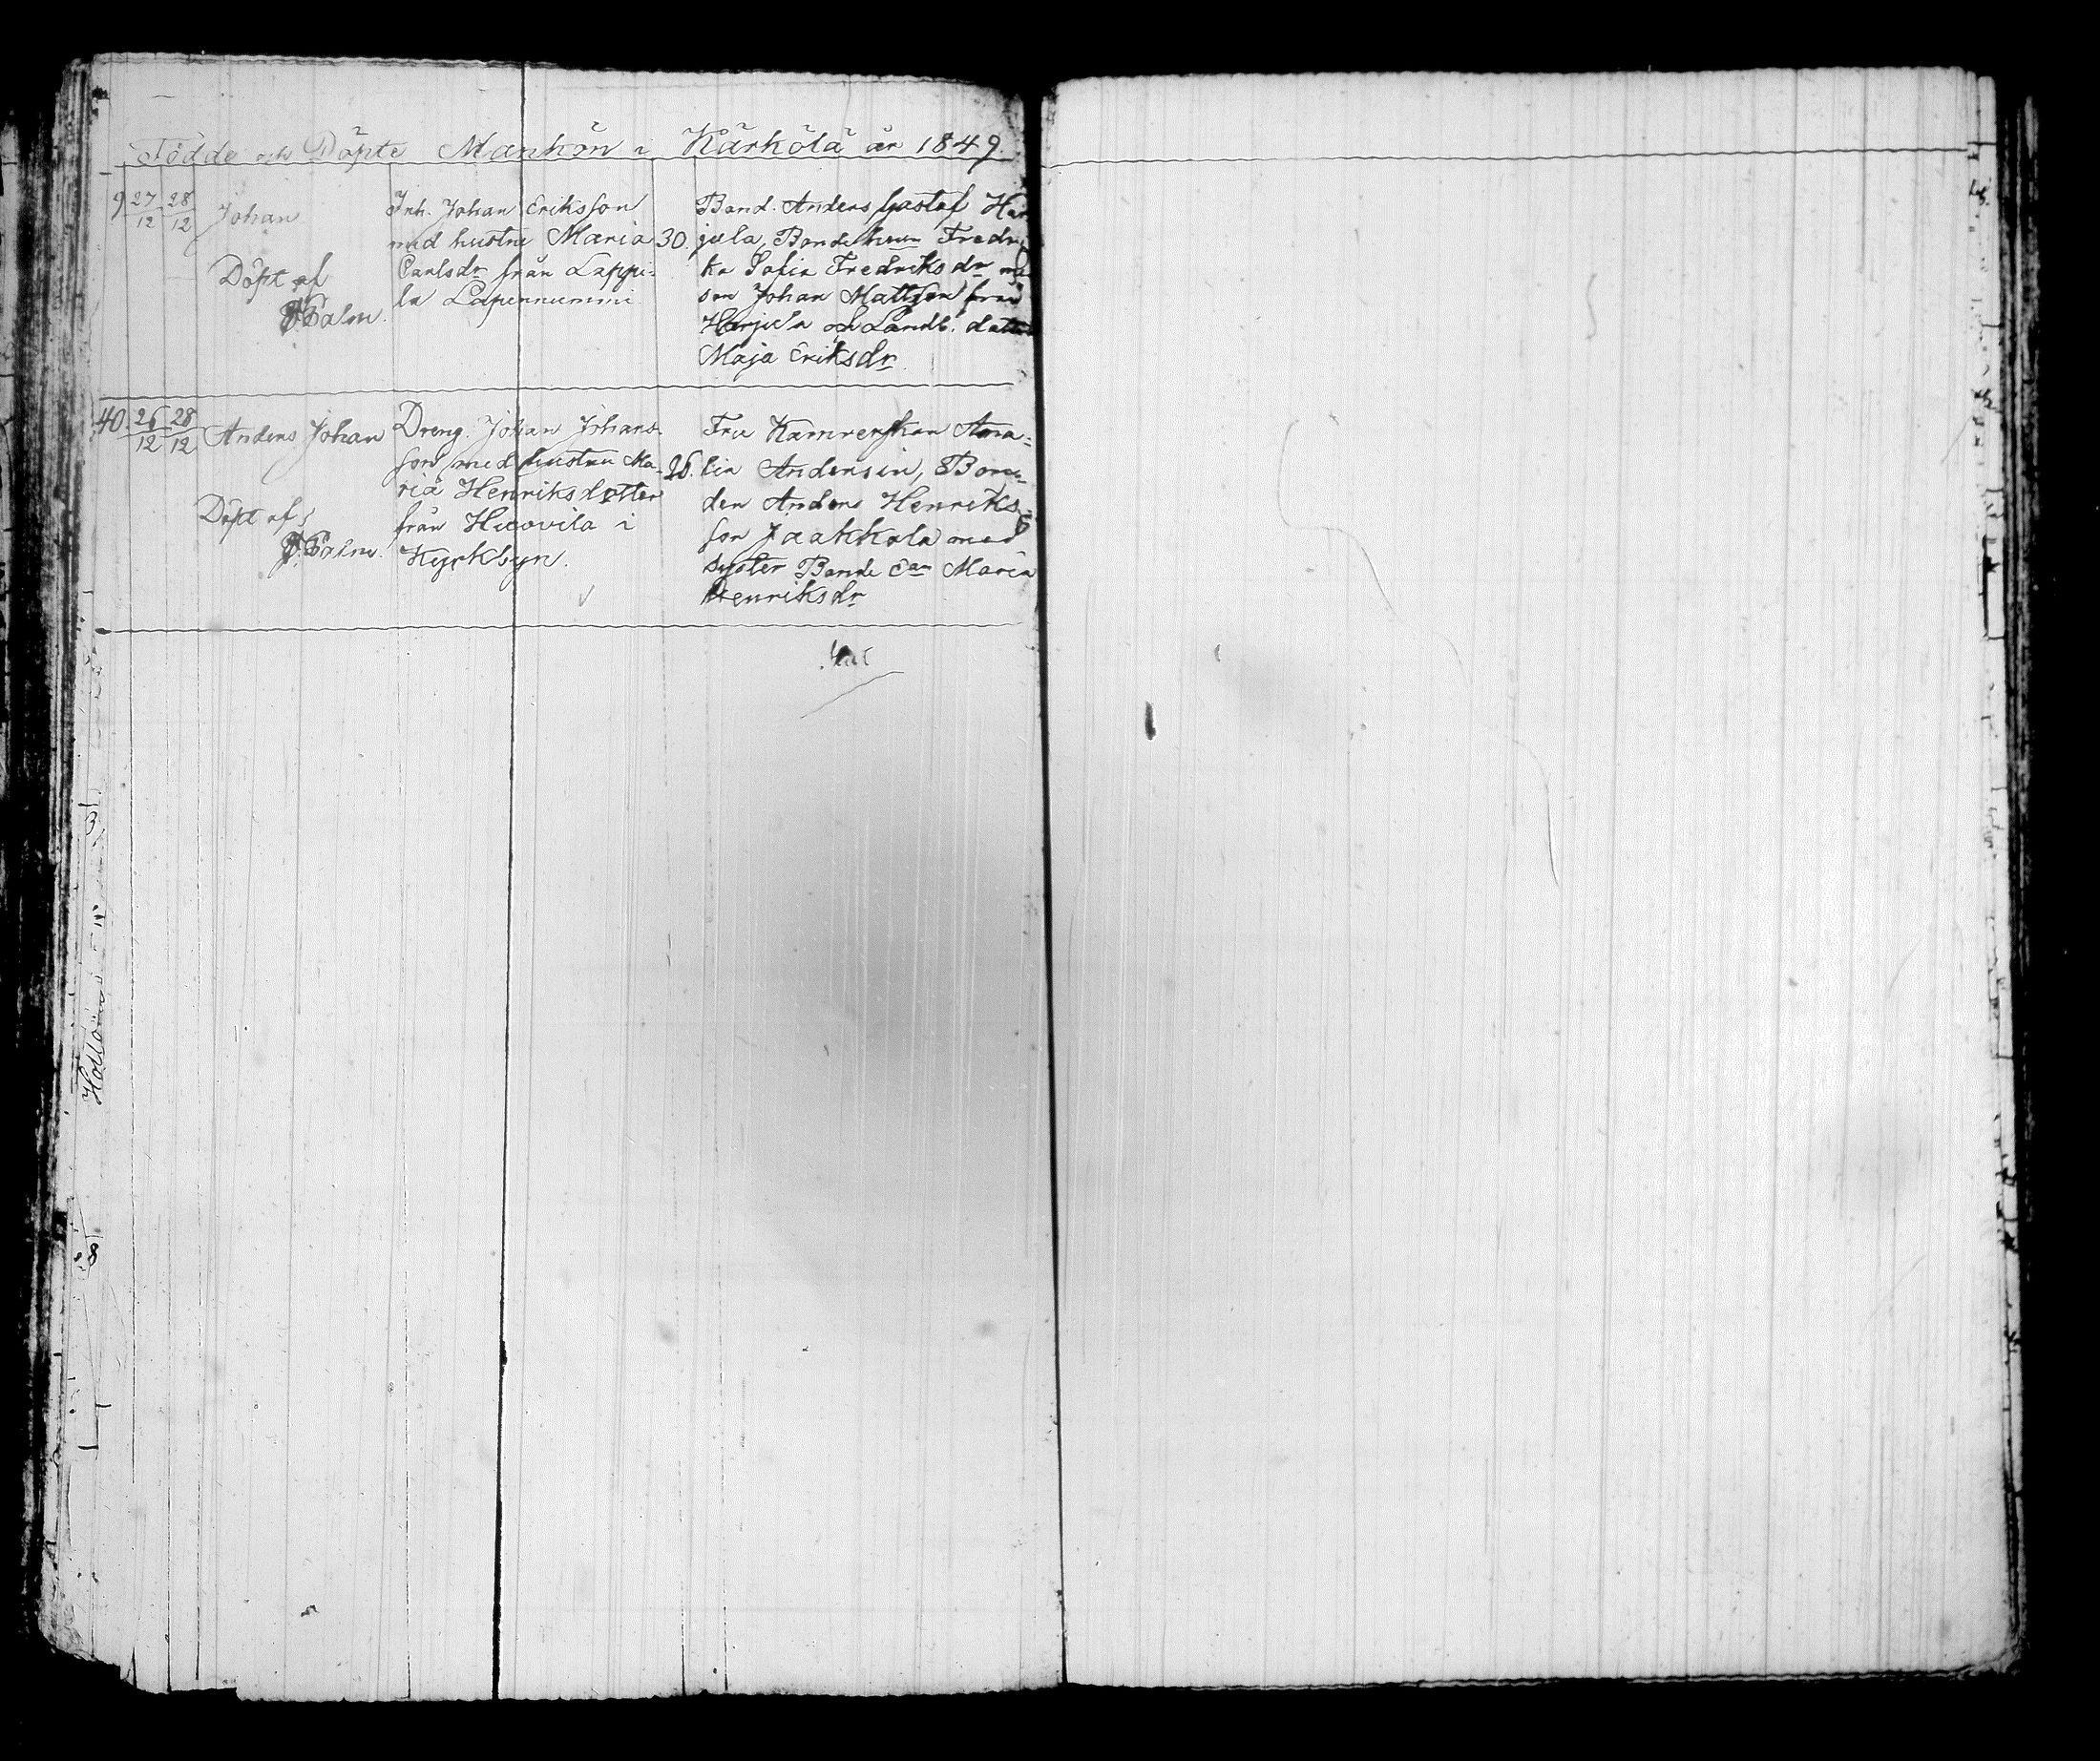 Födde och Döpte Mankön i Kärkölä år 1849.
9 27/12 28/12 Johan
Döpt af
Palm.
Inh. Johan Eriksson
med hustru Maria 30.
Carlsdr från Lappi-
la Lapennummi
Bond. Anders Gustaf Har
jula, Bondehun Fredri
ka Sofia Fredriksdr
son Johan Mattson från
Harjula och Landb. datter
Maja Eriksdr
40. 26/12 28/12 Anders Johan
Döpt af
Palm.
Dreng. Johan Johans-
son med hustru Ma- 26.
ria Henriksdotter
från Huovila i
Kyrkbyn.
Fru Kamrerskan Ama-
lia Andersin, Bon-
den Anders Henriks-
son Jaakkola med
syster Bonde Maria
Henriksdr